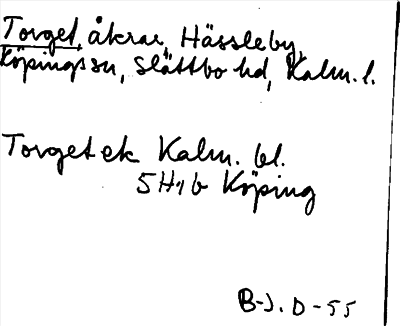 Torget, åkrar, Hässleby,
Köpings sn, Slättbo hd, Kalm. l.
Torget ek Kalm. bl.
5H1b Köping
B-J. D-55